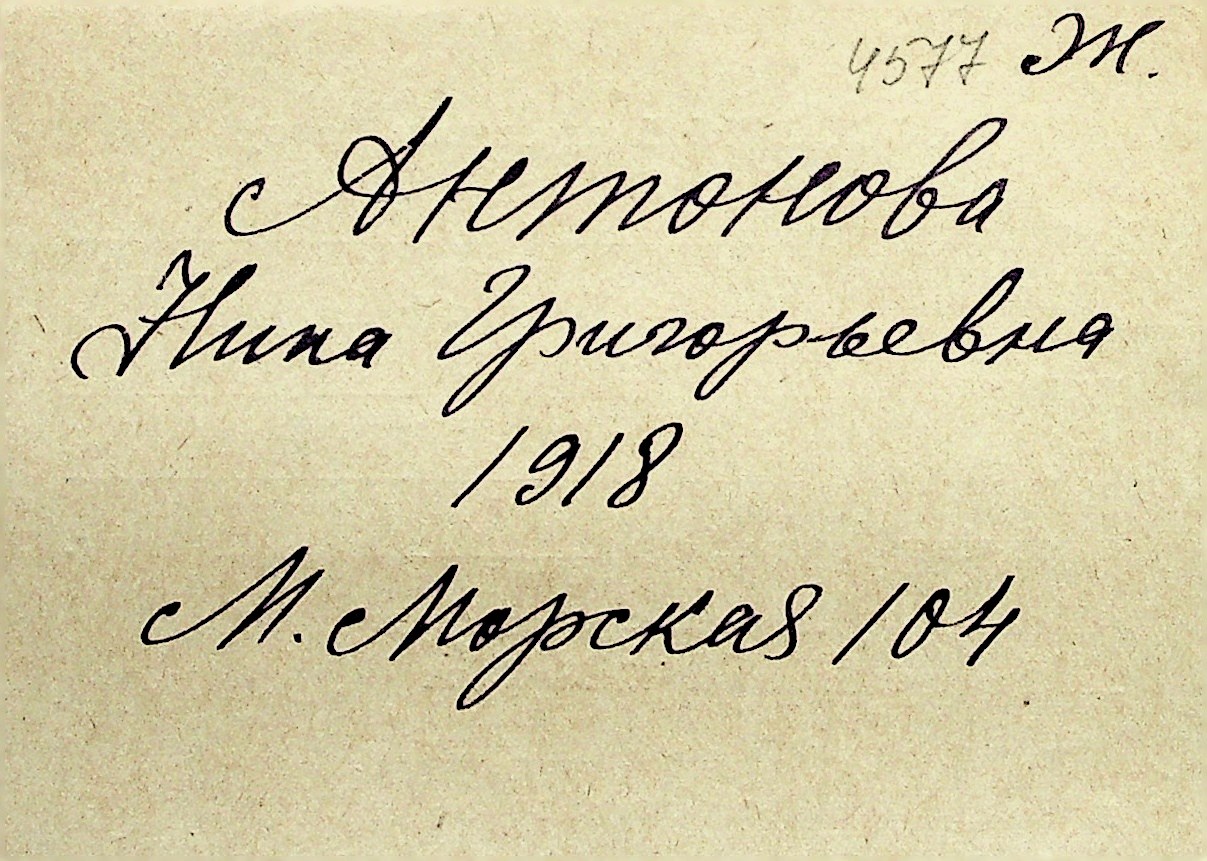 4577 Ж.
Антонова
Нина Григорьевна
1918
М. Морская 104